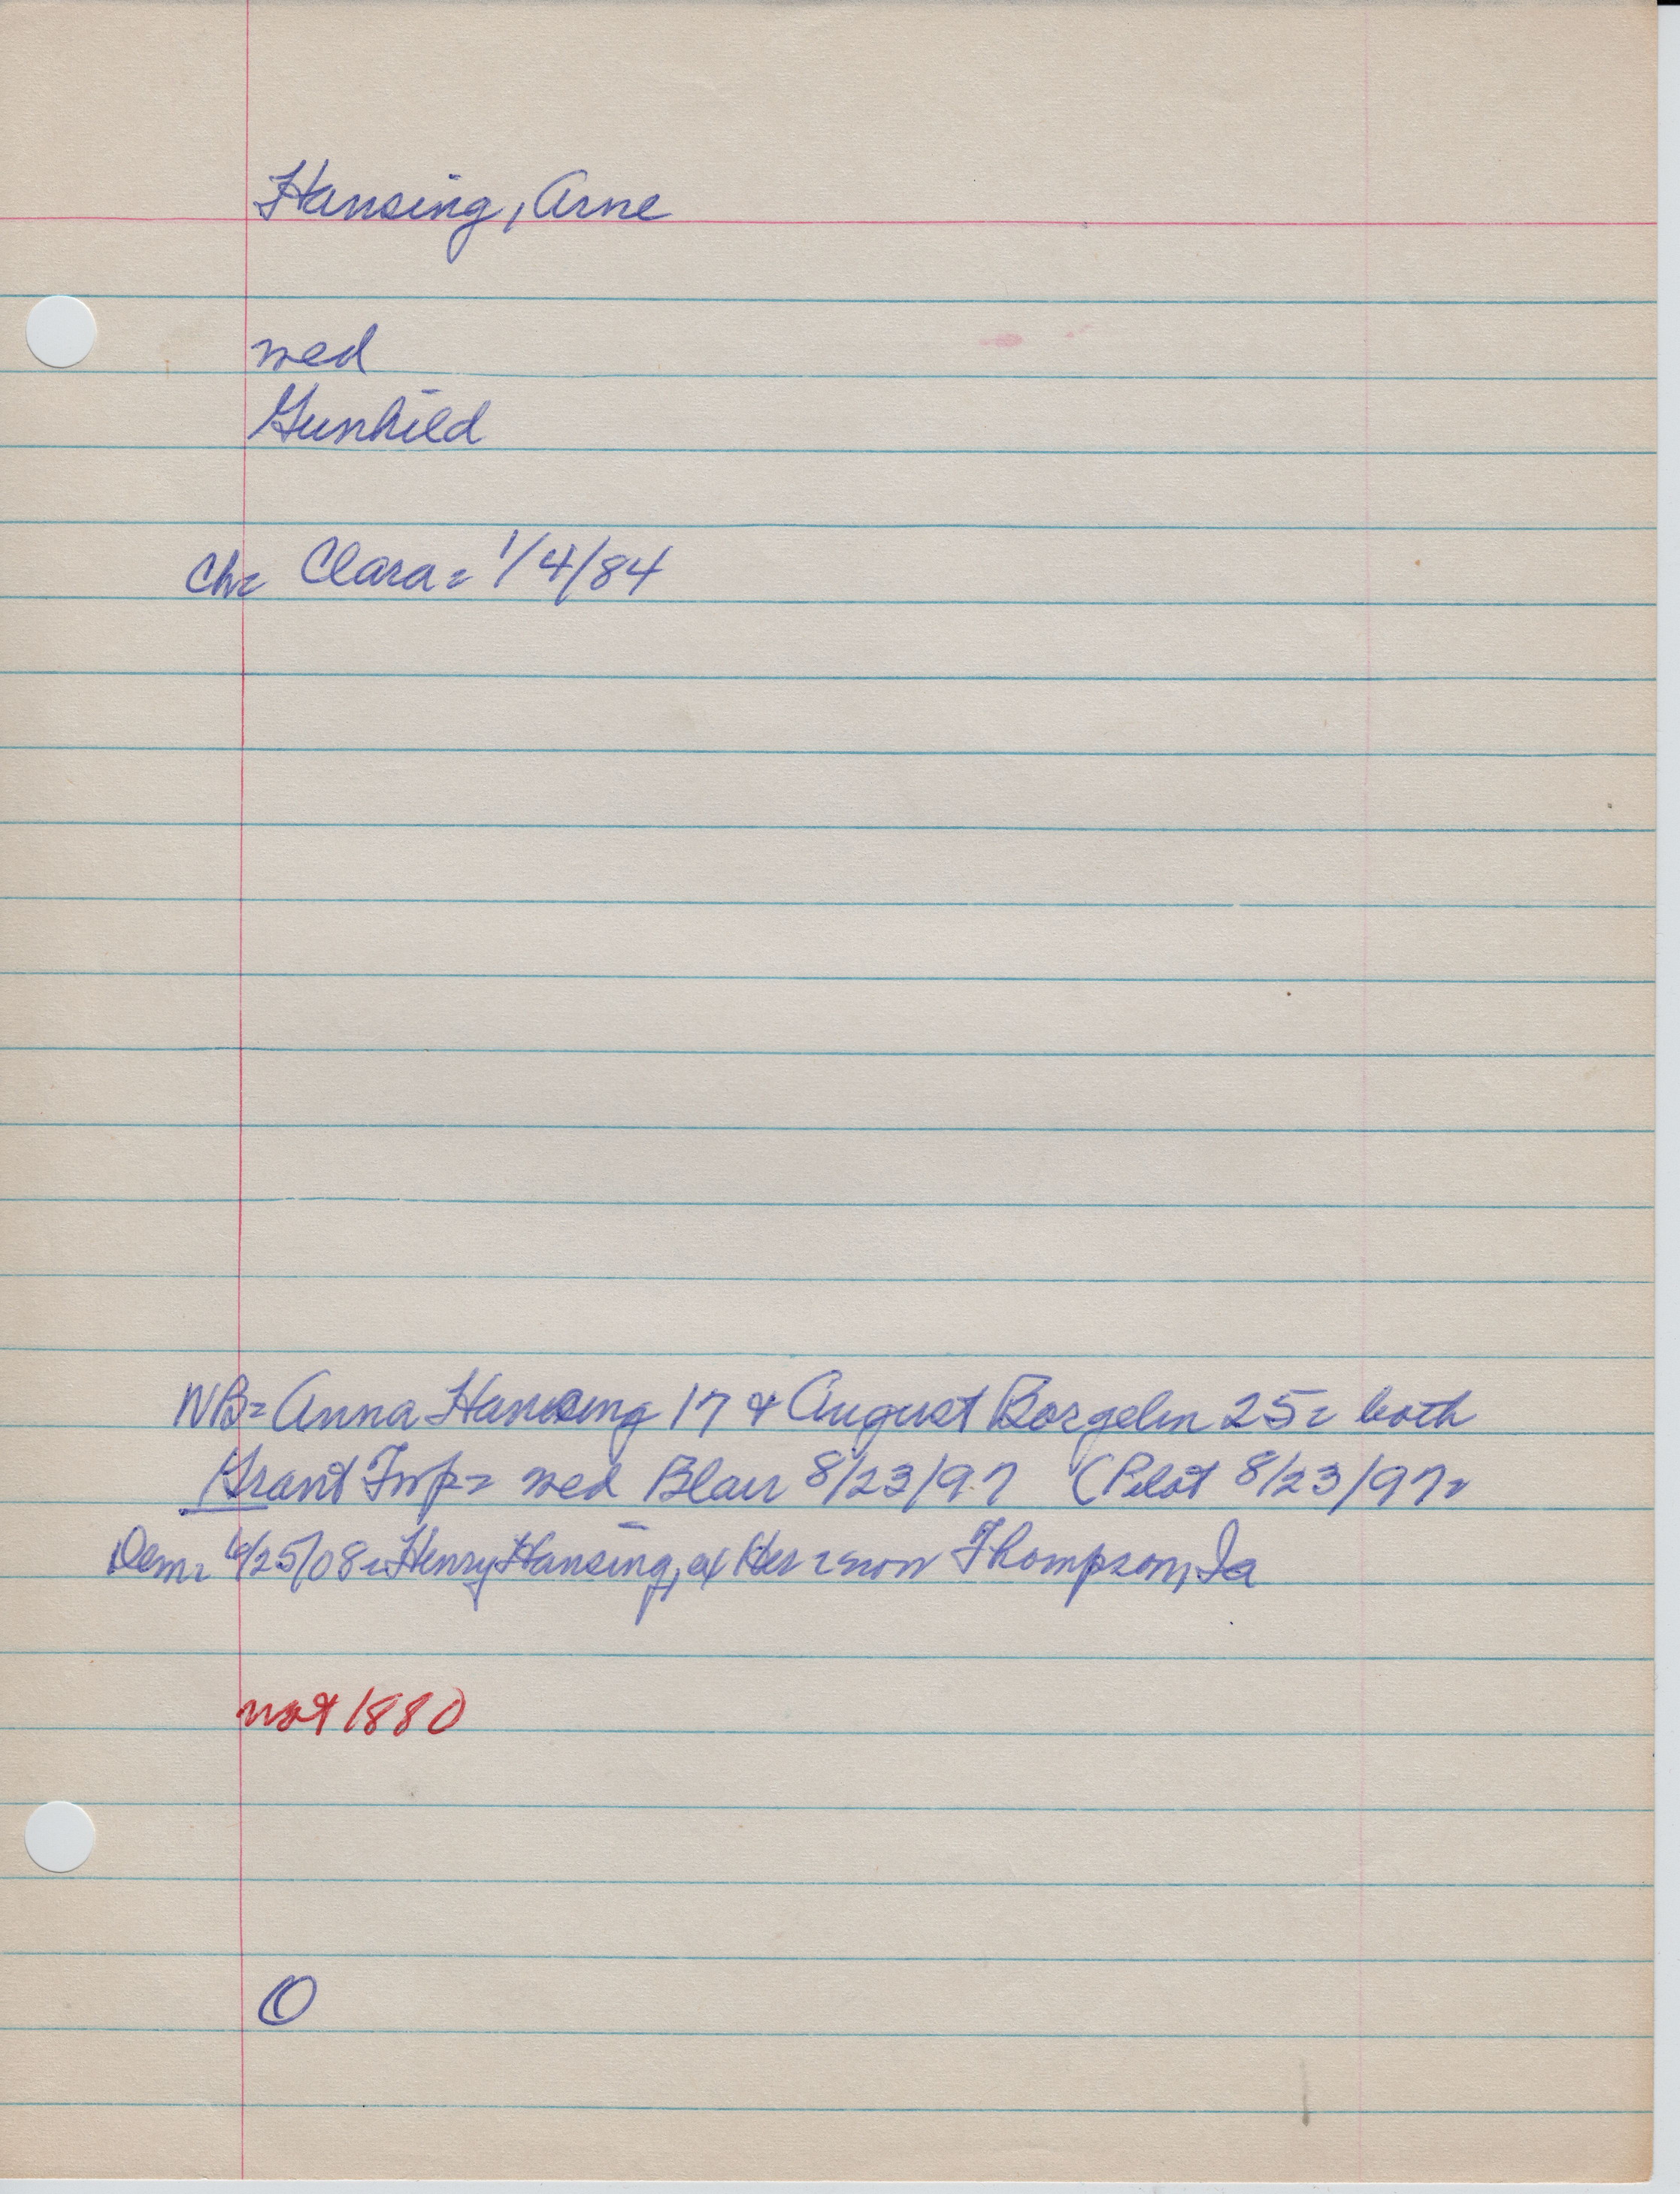 Hansing, Arne
wed
Gunhild
Ch= Clara= 1/4/84
NB= Anna Hansing 17 & August Borgelin 25= both
Grant Twp= wed Blair 8/23/97 (Pilot 8/23/97=
Dem= 6/25/08= Henry Hansing, ex Her= now Thompson, Ia
not 1880
O